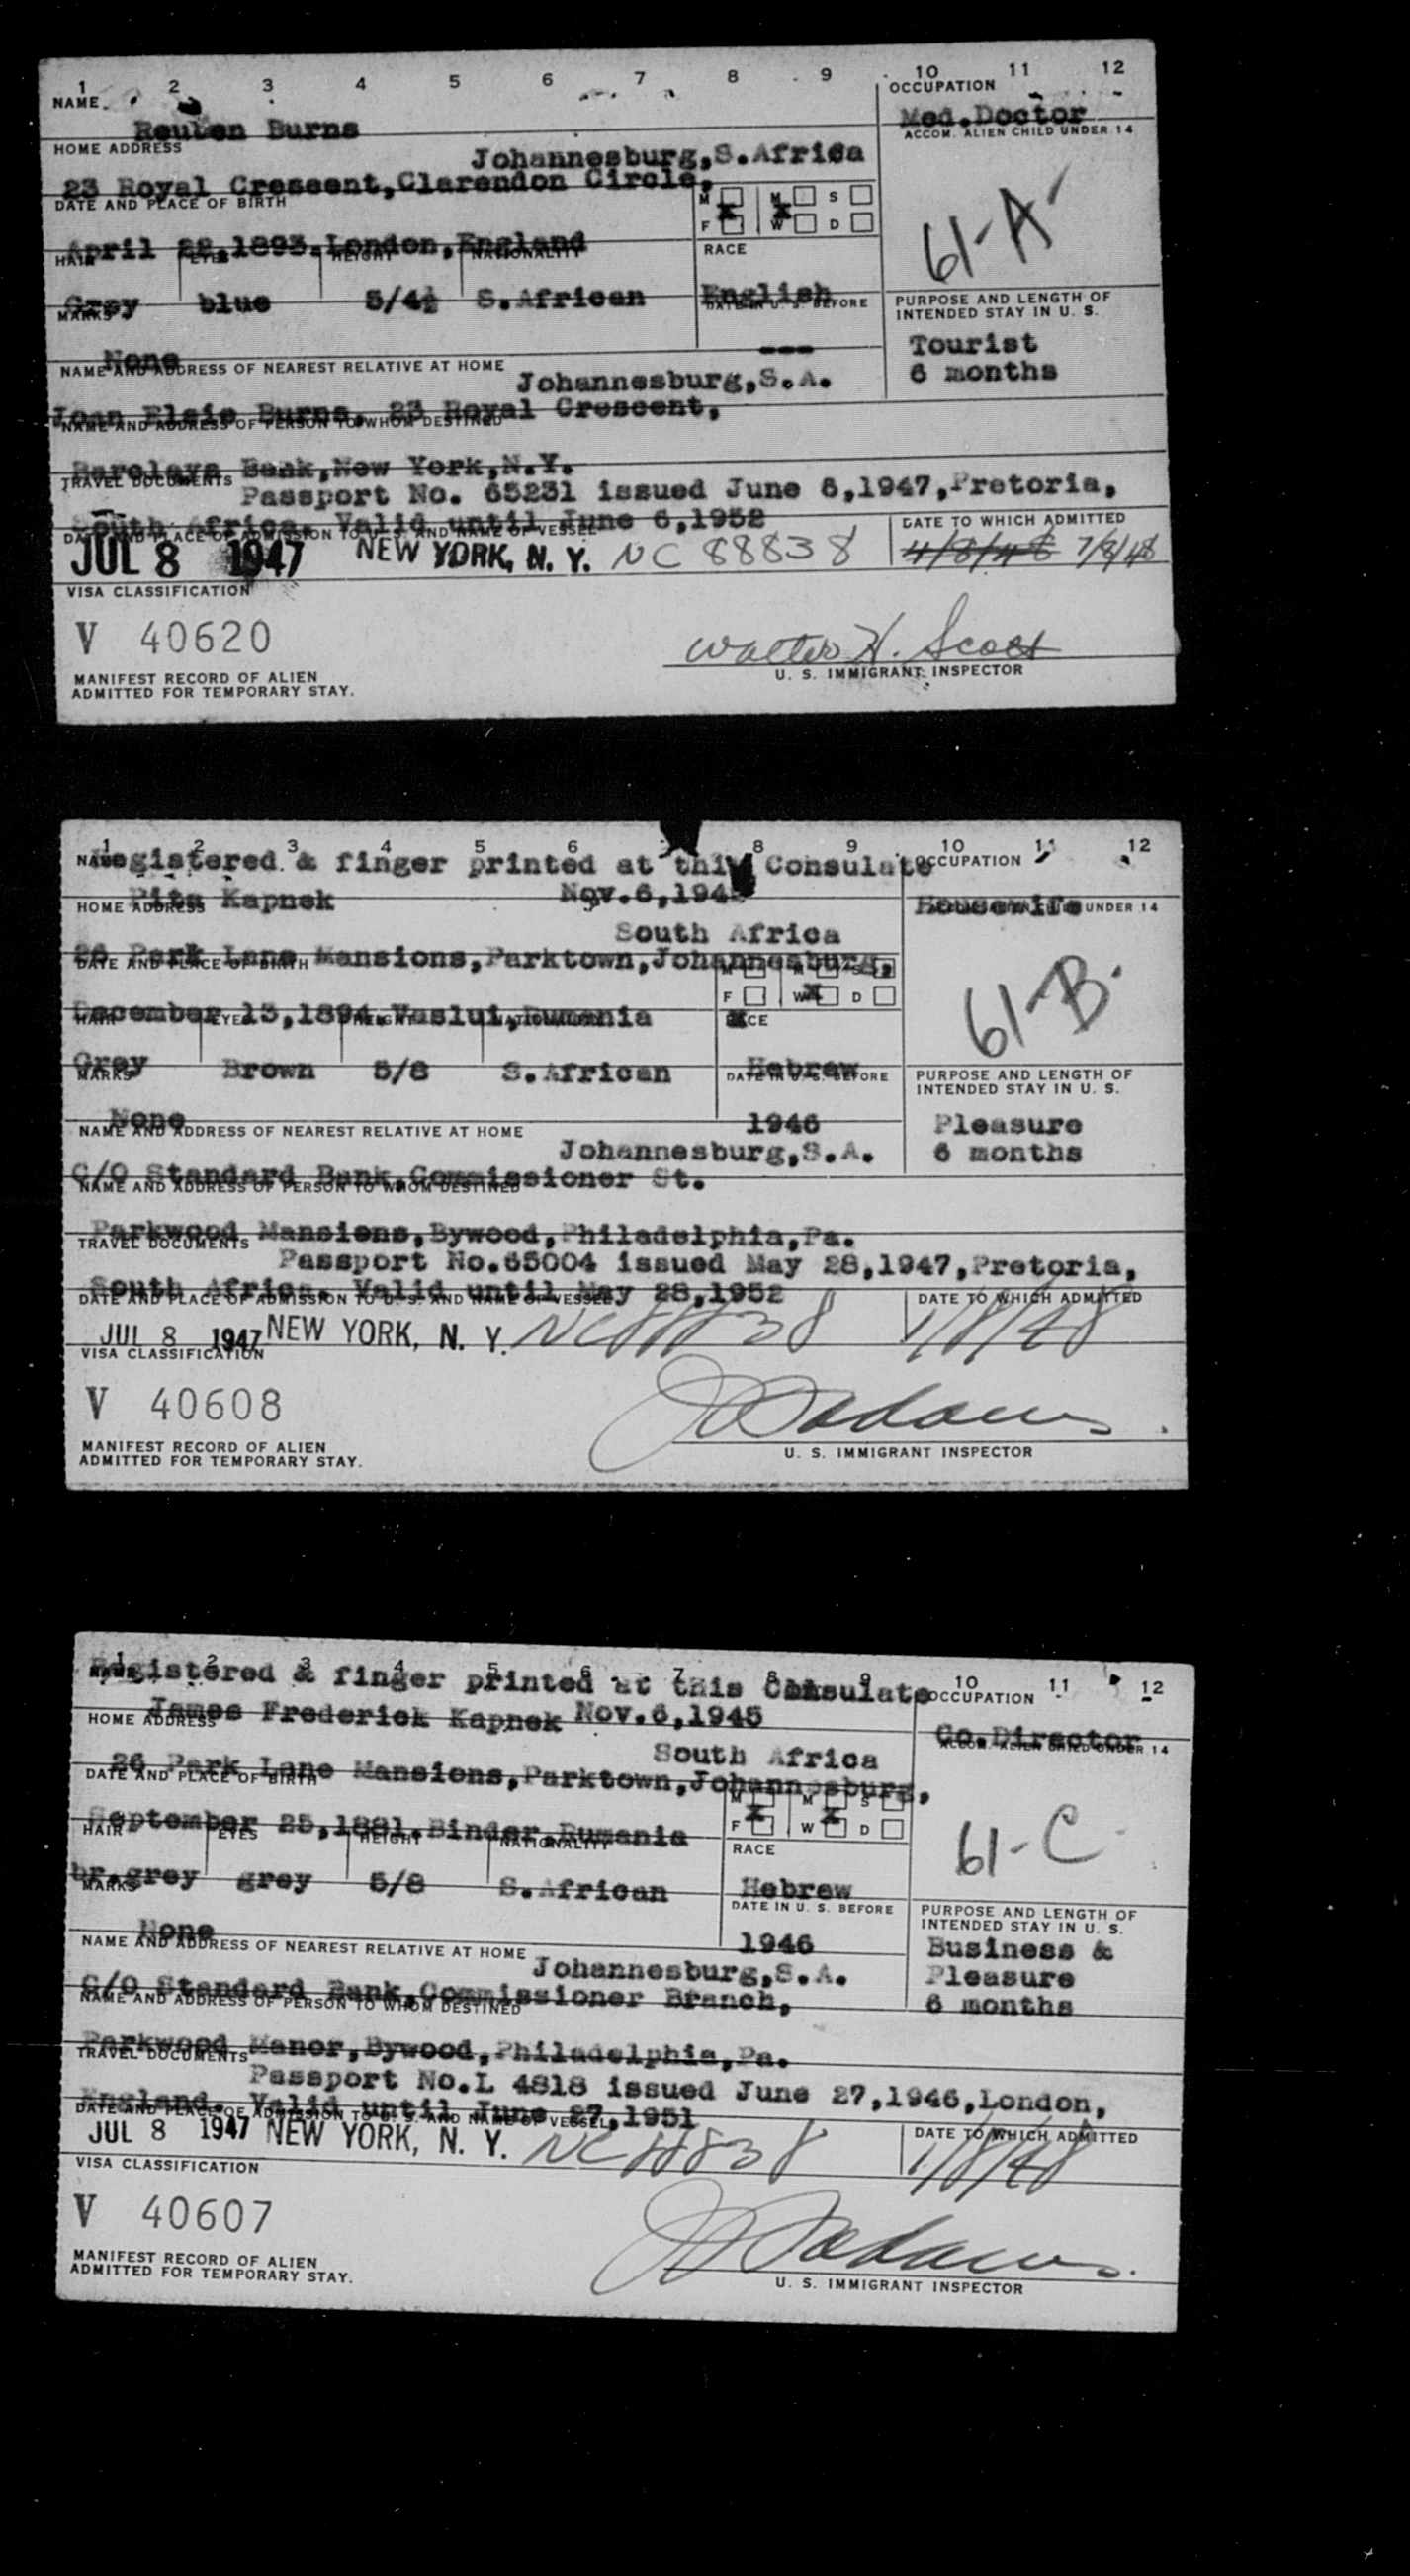 1 2 3 4 5 6 7 8 9 10 11 12
NAME OCCUPATION
Reuben Burns Med.Doctor
HOME ADDRESS ACCOM. ALIEN CHILD UNDER 14
Johannesburg,S.Africa
23 Royal Crescent,Clarendon Circle,
DATE AND PLACE OF BIRTH M M S
F W D
61-A
April 22,1893.London,England
HAIR EYES HEIGHT NATIONALITY RACE
Gray blue 5/4½ S.African English
MARKS DATE IN U. S. BEFORE PURPOSE AND LENGTH OF
INTENDED STAY IN U. S.
None --- Tourist
NAME AND ADDRESS OF NEAREST RELATIVE AT HOME 6 months
Johannesburg,S.A.
Joan Elsie Burns. 23 Royal Crescent,
NAME AND ADDRESS OF PERSON TO WHOM DESTINED
Barclays Bank,New York,N.Y.
TRAVEL DOCUMENTS
Passport No. 65231 issued June 6,1947,Pretoria,
South Africa. Valid until June 6,1952
DATE AND PLACE OF ADMISSION TO U. S. AND NAME OF VESSEL DATE TO WHICH ADMITTED
JUL 8 1947 NEW YORK, N. Y. NC 88838 4/8/48 7/8/48
VISA CLASSIFICATION
V 40620
Walter H. Scott
U. S. IMMIGRANT INSPECTOR
MANIFEST RECORD OF ALIEN
ADMITTED FOR TEMPORARY STAY.
1 2 3 4 5 6 8 9 10 11 12
NAME Registered & finger printed at this Consulate OCCUPATION
Rita Kapnek Nov.6,194 Housewife
HOME ADDRESS UNDER 14
South Africa
26 Park Lane Mansions,Parktown,Johannesburg,
DATE AND PLACE OF BIRTH M M S
F W D
61-B.
December 13,1894.Vaslui,Rumania
HAIR EYES HEIGHT NATIONALITY RACE
Grey Brown 5/8 S.African Hebrew
MARKS DATE IN U. S. BEFORE PURPOSE AND LENGTH OF
INTENDED STAY IN U. S.
None 1946 Pleasure
NAME AND ADDRESS OF NEAREST RELATIVE AT HOME 6 months
Johannesburg,S.A.
C/O Standard Bank,Commissioner St.
NAME AND ADDRESS OF PERSON TO WHOM DESTINED
Parkwood Mansions,Bywood,Philadelphia,Pa.
TRAVEL DOCUMENTS
Passport No.65004 issued May 28,1947,Pretoria,
South Africa. Valid until May 28,1952
DATE AND PLACE OF ADMISSION TO U. S. AND NAME OF VESSEL DATE TO WHICH ADMITTED
JUL 8 1947 NEW YORK, N. Y. NC 88838 1/8/48
VISA CLASSIFICATION
V 40608
U. S. IMMIGRANT INSPECTOR
MANIFEST RECORD OF ALIEN
ADMITTED FOR TEMPORARY STAY.
1 2 3 4 5 6 7 8 9 10 11 12
Registered & finger printed at this Consulate OCCUPATION
James Frederick Kapnek Nov.6,1945 Co.Director
HOME ADDRESS ACCOM. ALIEN CHILD UNDER 14
South Africa
26 Park Lane Mansions,Parktown,Johannesburg,
DATE AND PLACE OF BIRTH M M S
F W D
61-C
September 25,1881.Binder,Rumania
HAIR EYES HEIGHT NATIONALITY RACE
br.grey grey 5/8 S.African Hebrew
MARKS DATE IN U. S. BEFORE PURPOSE AND LENGTH OF
INTENDED STAY IN U. S.
None 1946 Business &
NAME AND ADDRESS OF NEAREST RELATIVE AT HOME Pleasure
Johannesburg,S.A. 6 months
C/O Standard Bank,Commissioner Branch,
NAME AND ADDRESS OF PERSON TO WHOM DESTINED
Parkwood Manor,Bywood,Philadelphia,Pa.
TRAVEL DOCUMENTS
Passport No.L 4818 issued June 27,1946,London,
England. Valid until June 27,1951
DATE AND PLACE OF ADMISSION TO U. S. AND NAME OF VESSEL DATE TO WHICH ADMITTED
JUL 8 1947 NEW YORK, N. Y. NC 88838 1/8/48
VISA CLASSIFICATION
V 40607
U. S. IMMIGRANT INSPECTOR
MANIFEST RECORD OF ALIEN
ADMITTED FOR TEMPORARY STAY.